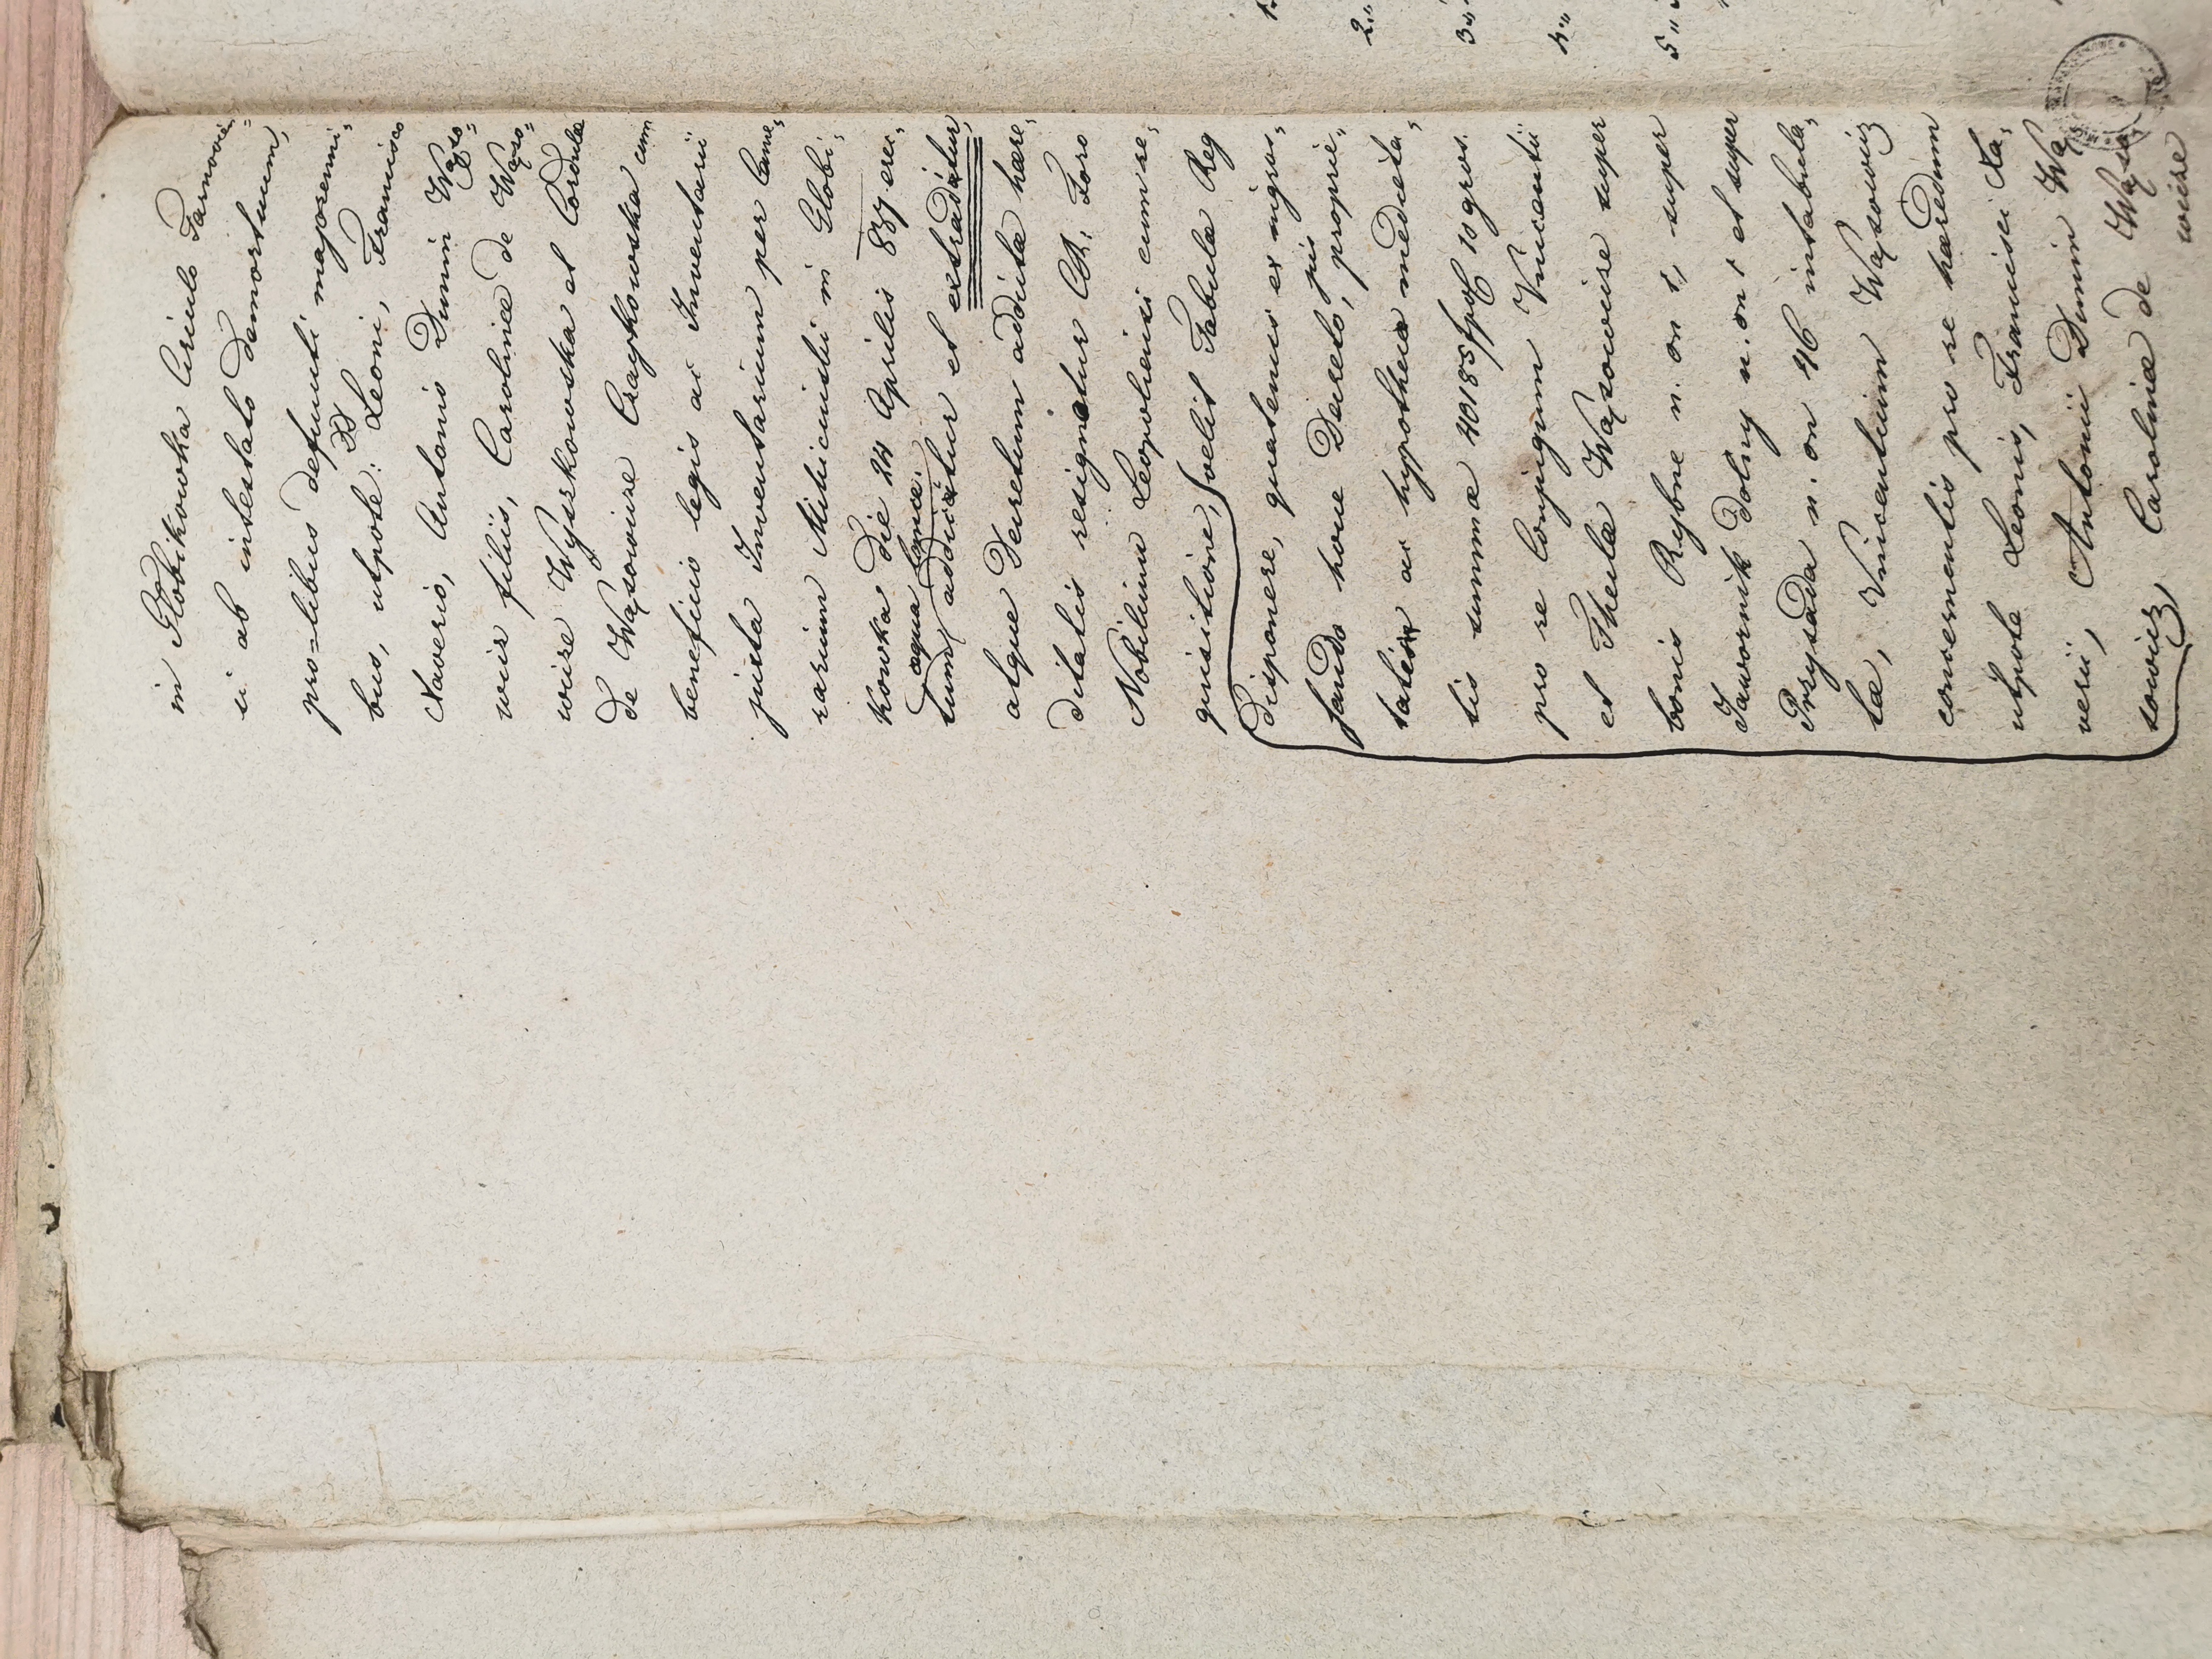 in Głobikowka Circulo Tarnovien=
si ab intestato demortuum,
pro=libus defuncti majorenni,
bus, utpote: DD Leoni, Francisco
Xaverio, Antonio Dunin Wąso=
wicz filiis, Carolinæ de Wąso=
wicze Wyszkowska et Cordulæ
de Wąsowicze Czaykowska cum
beneficio legis ac Inventarii
juxta Inventarium per Came,
rarium Mikicinski in Globi,
kowka die 24 Aprilis 837 erec,
aqua lance.
tum, addicitur et extradatur,
atque Decretum additæ hære,
ditatis resignatur CR. Foro
Nobilium Leopoliensi cum re,
quisitione, velit Tabulæ Reg
disponere, quatenus ex nigros,
sando hove Decreto, jus proprie,
tatis ac hypothecæ medieta,
tis summæ 40185 fpol 10 gros.
pro re Conjugum Vincentii
et Theclæ Wąsowicze super
bonis Rybne n. on 1, super
Jawornik dolny n. on 1 et super
Przysada n. on 46 intabula,
tæ, Vincentium Wąsowicz
concernentis pro re hæredum
utpote Leonis, Francisci Xa,
verii, Antonii Dunin Wą
sowicz, Carolinæ de Wąso,
wicze
2,,
3,,
4,,
5,,